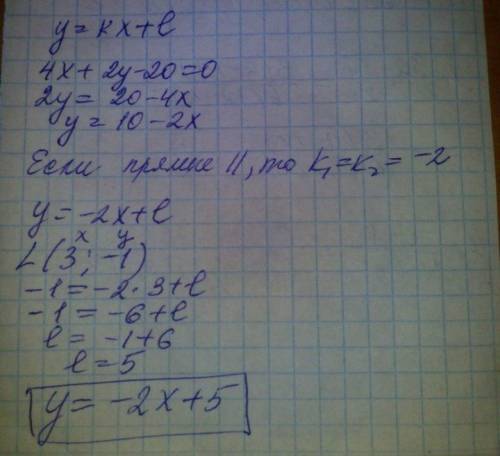 y = kx + l
4x + 2y - 20 = 0
2y = 20 - 4x
y = 10 - 2x
Если прямые ||, то k₁ = k₂ = -2
y = -2x + l
x y
L(3; -1)
-1 = -2 · 3 + l
-1 = -6 + l
l = -1 + 6
l = 5
y = -2x + 5